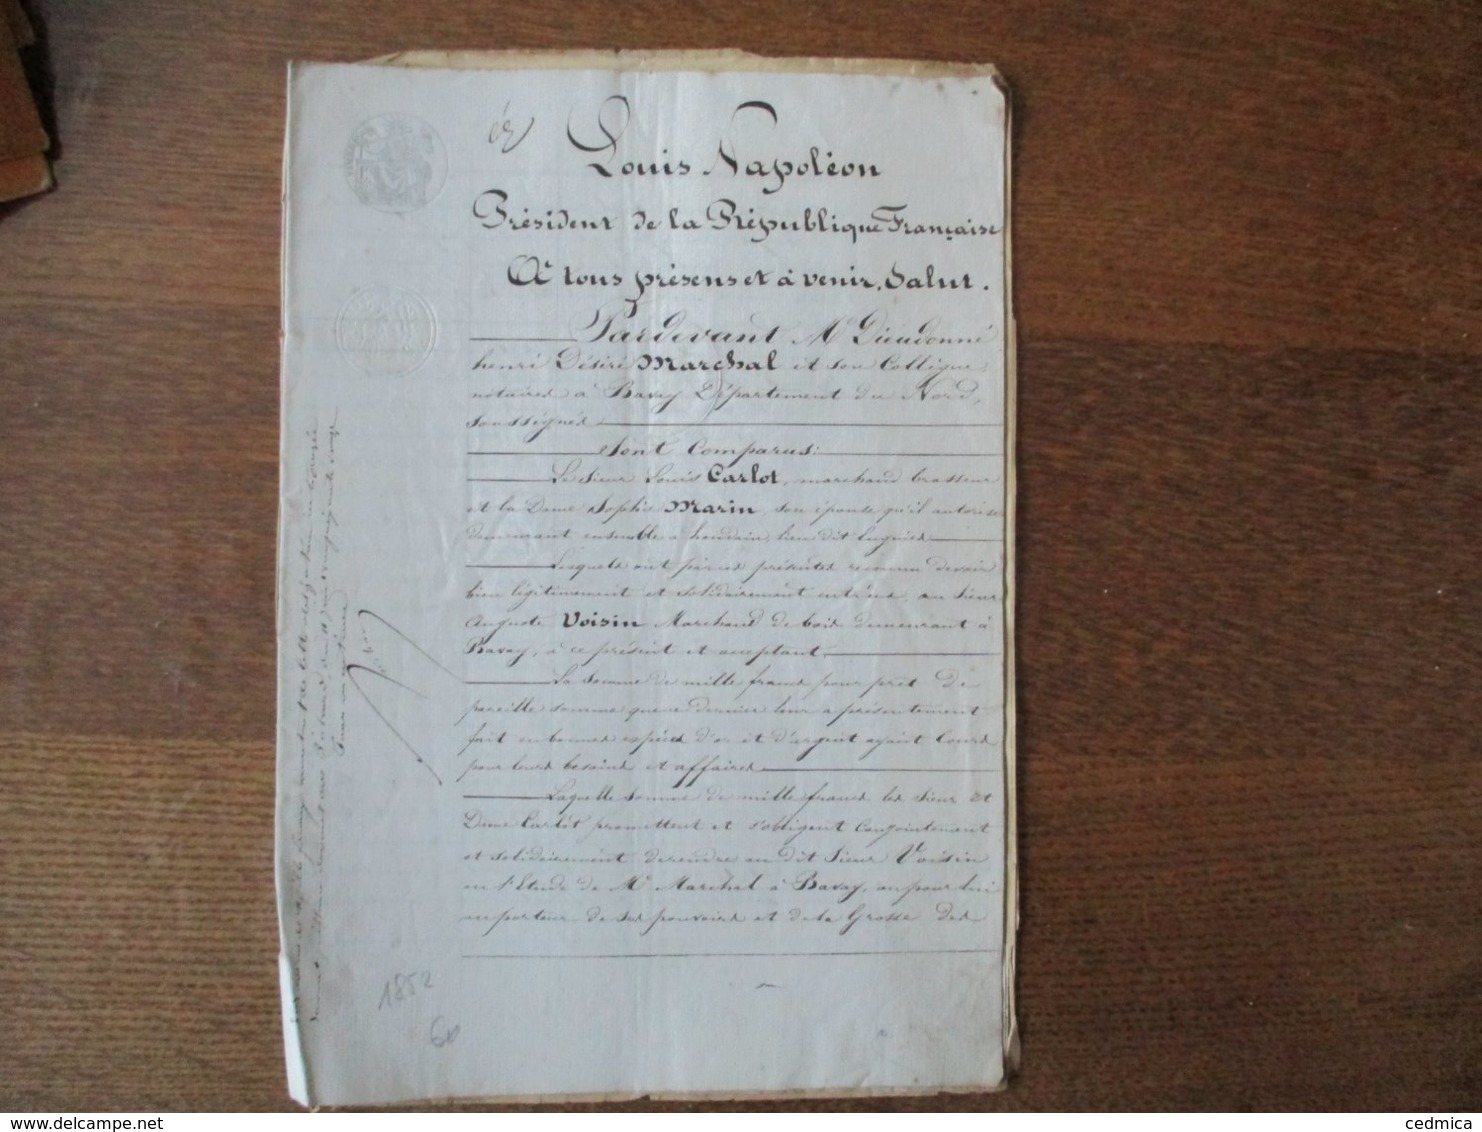 Louis Napoléon
Président de la République Française
A tous présens et à venir, Salut.
Pardevant Me Dieudonné
henri Désiré Marchal et son Collègue,
notaires à Bavay Département du Nord,
soussignés
Sont Comparus:
Le Sieur Louis Carlot, marchand brasseur
et la Dame Sophie Marin, son épouse qu'il autorise
demeurant ensemble à houdain, lieu dit
Lesquels ont par ces présentes reconnu devoir
bien légitimement et solidairement entr'eux, au Sieur
Auguste Voisin Marchand de bois demeurant à
Bavay, à ce présent et acceptant,
La Somme de mille francs pour prêt de
pareille somme que ce dernier leur a présentement
fait en bonnes espèces d'or et d'argent ayant Cours
pour leurs besoins et affaires
Laquelle Somme de mille francs les Sieur et
Dame Carlot promettent et s'obligent Conjointement
et solidairement de rendre au dit Sieur Voisin
en l'Etude de Me Marchal à Bavay, ou pour lui
au porteur de ses pouvoirs et de la Grosse des
1852
cedmica